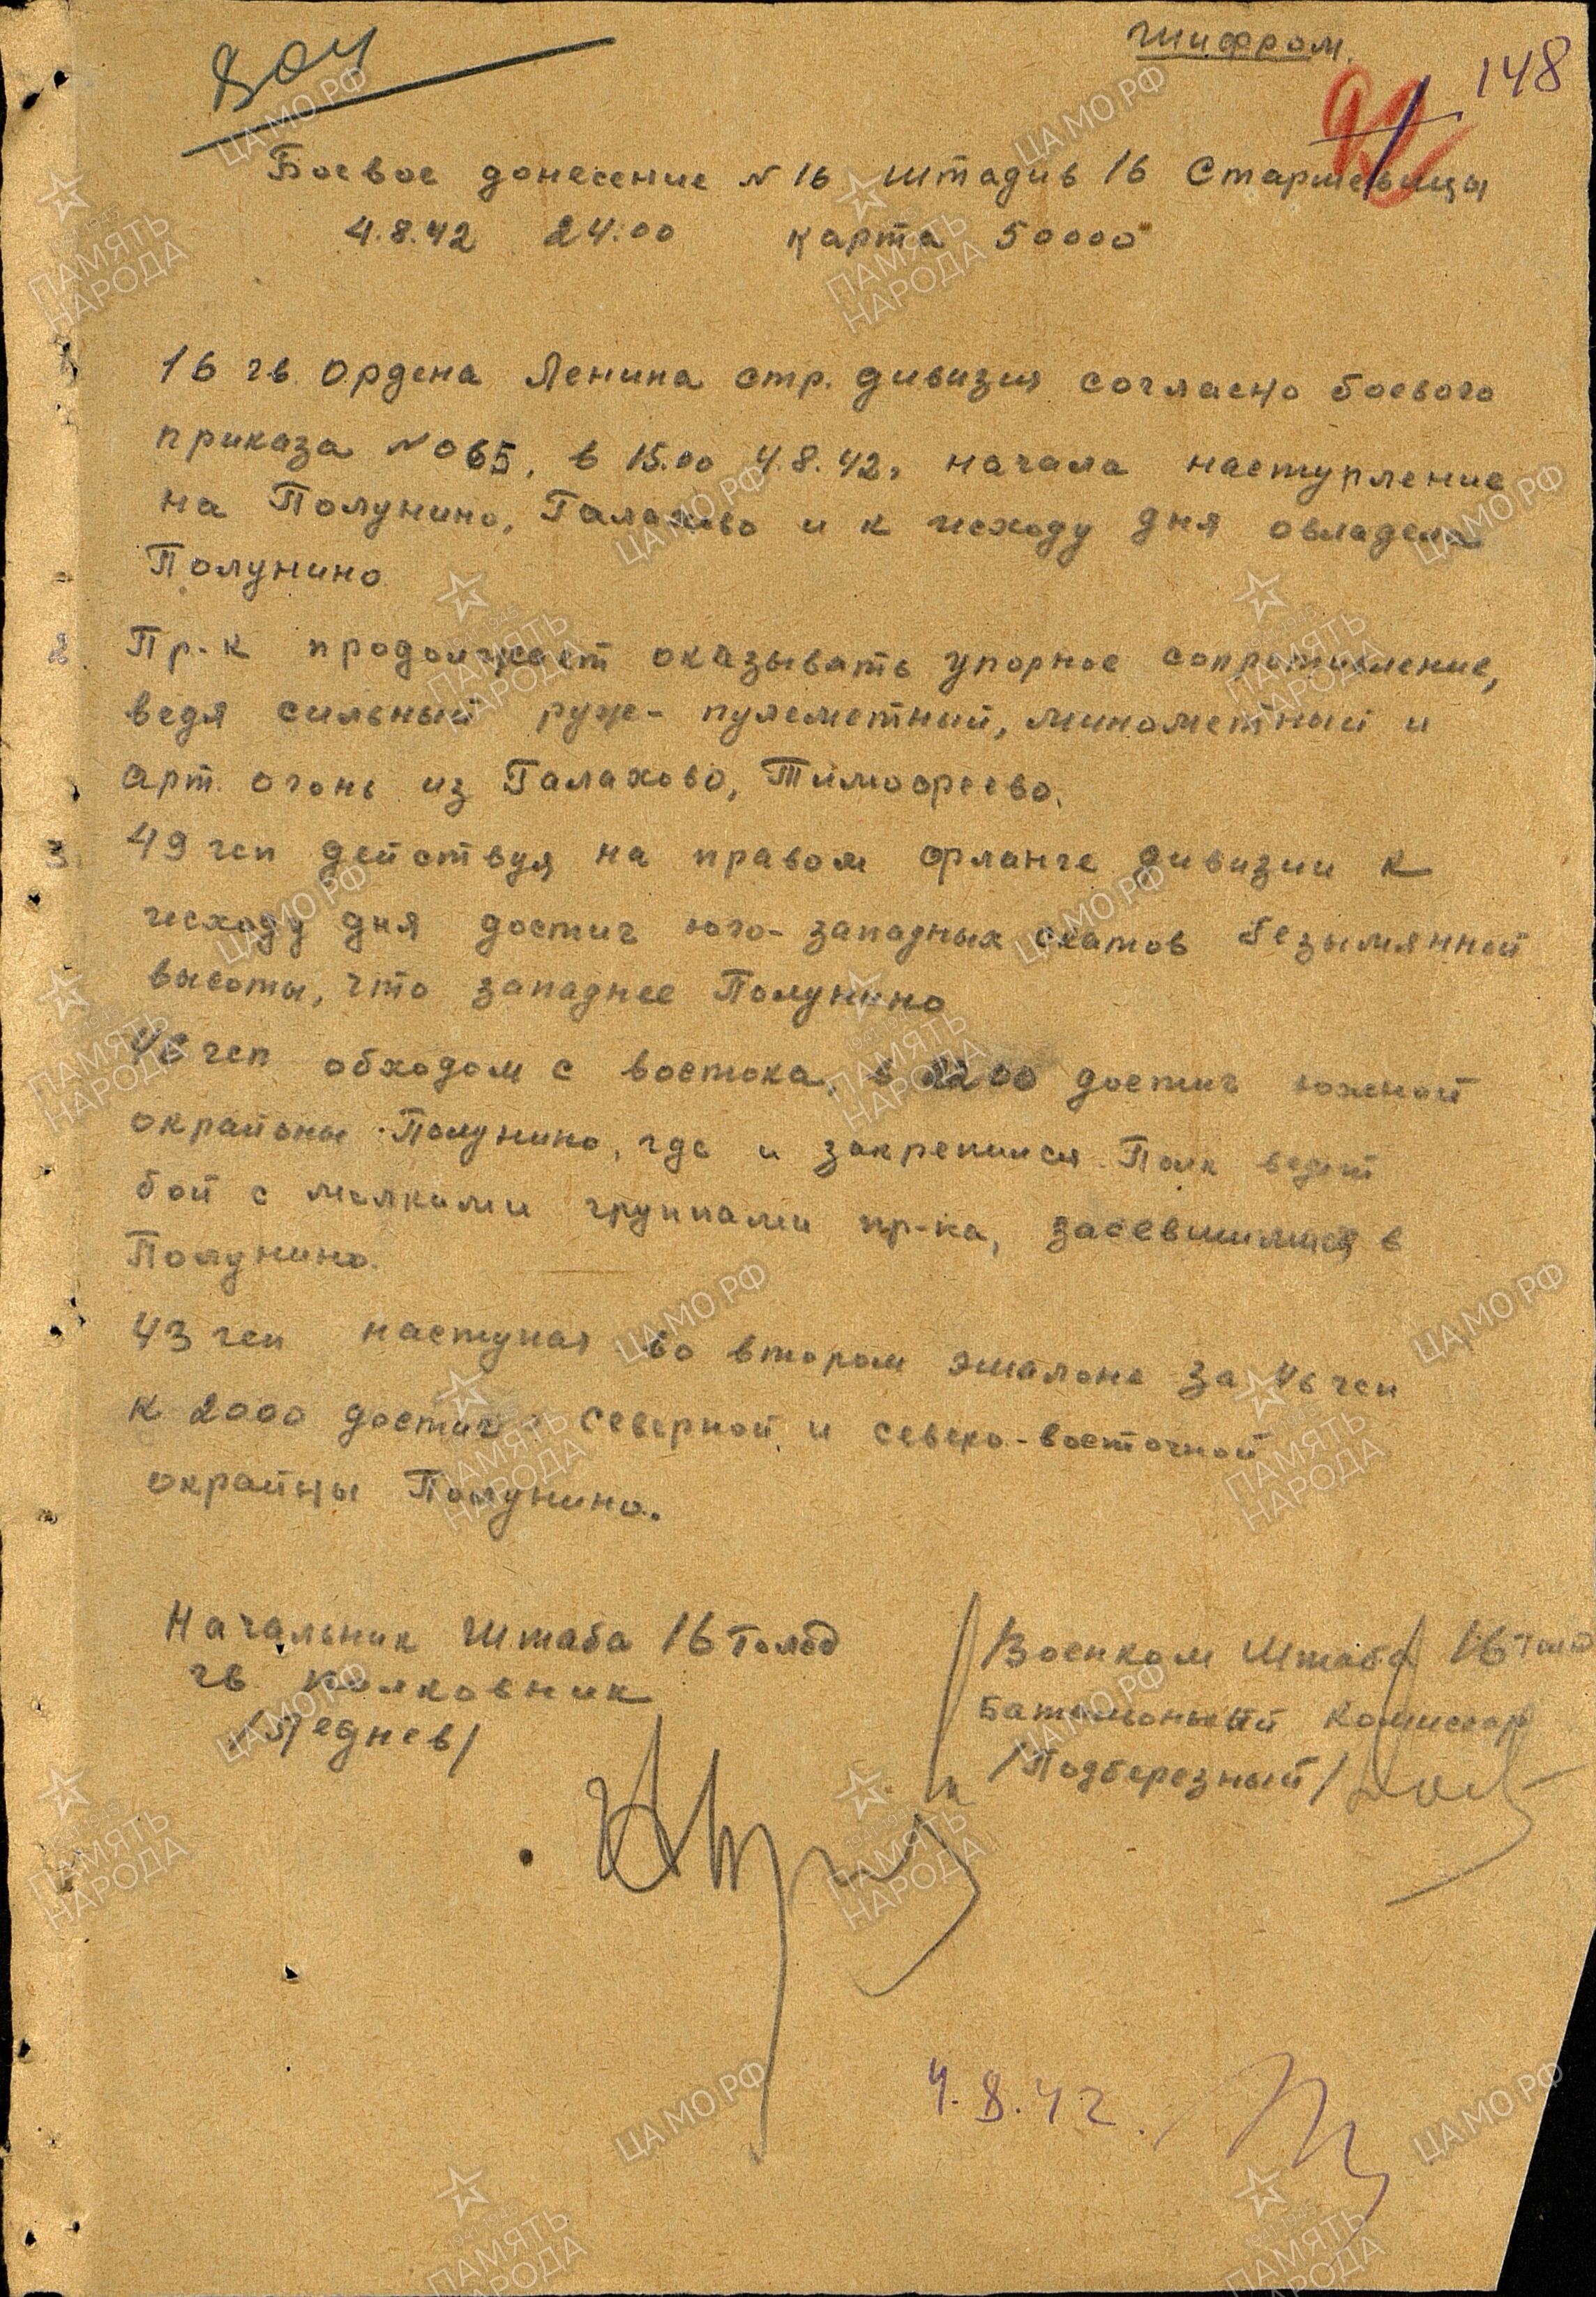 шифром.
148
Боевое донесение N 16 штадив 16 Старшевицы
4.8.42 24.00 карта 50000
16 гв. Ордена Ленина стр. дивизия согласно боевого
приказа N 065, в 15.00 4.8.42, начала наступление
на Полунино, Галахово и к исходу дня овладела
Полунино
2. Пр-к продолжает оказывать упорное сопротивление,
ведя сильный руж-пулеметный, минометный и
арт. огонь из Галахово, Тимофеево.
3. 49 гсп действуя на правом фланге дивизии к
исходу дня достиг юго-западных скатов безымянной
высоты, что западнее Полунино
46 гсп обходом с востока, в 2200 достиг южной
окрайны Полунино, где и закрепился. Полк ведет
бой с мелкими группами пр-ка, засевшимися в
Полунино.
43 гсп наступая во втором эшалоне за 46 гсп
к 2000 достиг северной и северо-восточной
окрайны Полунино.
Начальник Штаба 16 голсд
гв. полковник
/Леднев/
Военком Штаба 16 голсд
Батальонный комиссар
/Подберезный/
4.8.42.
ЦА МО РФ
ПАМЯТЬ НАРОДА